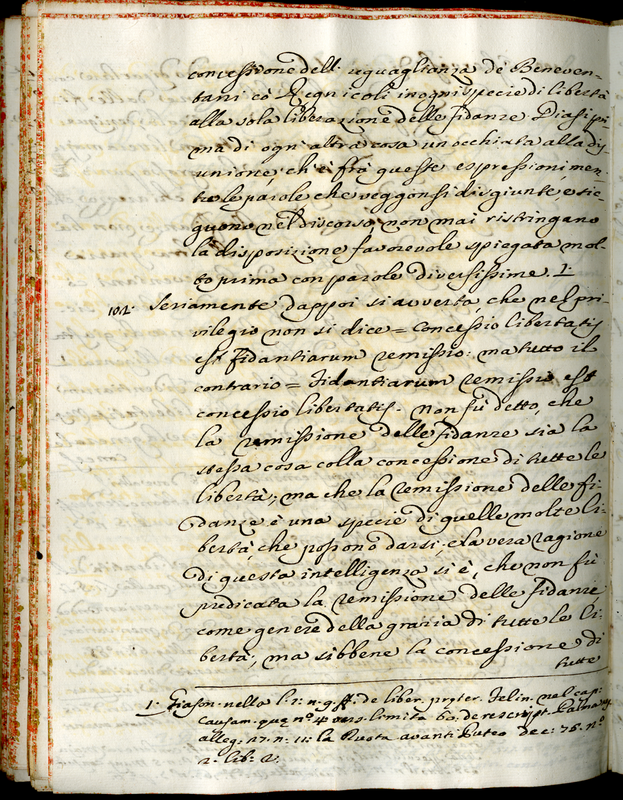 concessione dell' uguaglianza de' Beneven-
tani co' Regnicoli in ogni specie di libertà
alla sola liberazione delle fidanze. Diasi pri
ma di ogni altra cosa un'occhiata alla dis
unione, ch'è frà queste espressioni, men
tre le parole che veggonsi disgiunte, e sie-
guono nel discorso, non mai ristringano
la disposizione favorevole spiegata mol-
to prima con parole diversissime. 1.
102. Seriamente dappoi si avverta, che nel pri-
vilegio non si dice = Concessio libertatis
est fidantiarum remissio: ma tutto il
contrario = fidantiarum remissio est
concessio libertatis. Non fù detto, che
la remissione delle fidanze sia la
stessa cosa colla concessione di tutte le
libertà; ma che la remissione delle fi-
danze è una specie di quelle molte li-
bertà, che possono darsi; e la vera ragione
di questa intelligenza si è, che non fù
predicata la remissione delle fidanze
come genere della grazia di tutte le li-
bertà, ma sibbene la concessione di
tutte
1. Giason. nella l. 1. n. 9. ff. de liber. Felin. nel cap.
causam. quę n.º 4 vers. limita 60. de rescript.
alleg. 27. n. 11: la Ruota avanti Puteo dec: 76. nº
2. lib: 2.